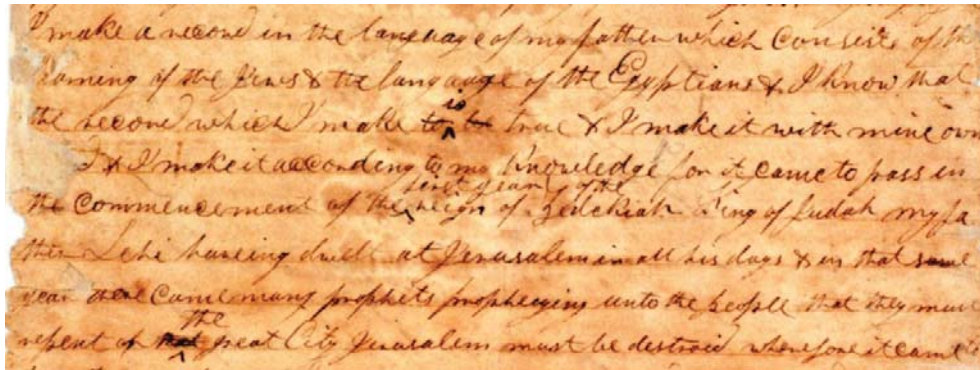 I make a record in the language of my father which consists of th
learning of the Jews & the language of the Egyptians & I know that
is
the record which I make to be true & I make it with mine ow
d & I make it according to my Knowledge for it came to pass in
first year of the
the commencement of the reign of Zedekiah King of Judah my fa
ther Lehi haveing dwelt at Jerusalem in all his days & in that same
year there came many prophets prophesying unto the people that they mus
the
repent or that great City Jerusalem must be destroid wherefore it came t